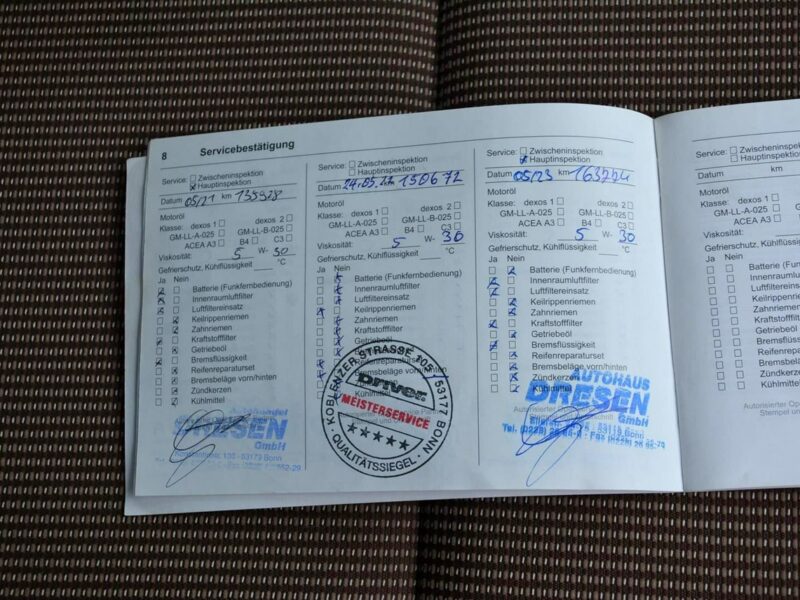 8 Servicebestätigung
Service: Zwischeninspektion
Hauptinspektion
Datum 05/21 km 135928
Motoröl
Klasse: dexos 1 dexos 2
GM-LL-A-025 GM-LL-B-025
ACEA A3 B4 C3
Viskosität: 5 W- 30
Gefrierschutz, Kühlflüssigkeit °C
Ja Nein
Batterie (Funkfernbedienung)
Innenraumluftfilter
Luftfiltereinsatz
Keilrippenriemen
Zahnriemen
Kraftstofffilter
Getriebeöl
Bremsflüssigkeit
Reifenreparaturset
Bremsbeläge vorn/hinten
Zündkerzen
Kühlmittel
DRESEN
GmbH
53179 Bonn
Service: Zwischeninspektion
Hauptinspektion
Datum 24.05.22 km 150672
Motoröl
Klasse: dexos 1 dexos 2
GM-LL-A-025 GM-LL-B-025
ACEA A3 B4 C3
Viskosität: 5 W- 30
Gefrierschutz, Kühlflüssigkeit °C
Ja Nein
Batterie (Funkfernbedienung)
Innenraumluftfilter
Luftfiltereinsatz
Keilrippenriemen
Zahnriemen
Kraftstofffilter
Getriebeöl
Reifenreparaturset
Bremsbeläge vorn/hinten
KOBLENZER STRASSE 105 / 53177 BONN
Driver
MEISTERSERVICE
QUALITÄTSSIEGEL
Service: Zwischeninspektion
Hauptinspektion
Datum 05/23 km 163224
Motoröl
Klasse: dexos 1 dexos 2
GM-LL-A-025 GM-LL-B-025
ACEA A3 B4 C3
Viskosität: 5 W- 30
Gefrierschutz, Kühlflüssigkeit °C
Ja Nein
Batterie (Funkfernbedienung)
Innenraumluftfilter
Luftfiltereinsatz
Keilrippenriemen
Zahnriemen
Kraftstofffilter
Getriebeöl
Bremsflüssigkeit
Reifenreparaturset
Bremsbeläge vorn/hinten
Zündkerzen
Kühlmittel
AUTOHAUS
DRESEN
GmbH
53179 Bonn
Service: Zwischeninspektion
Hauptinspektion
Datum km
Motoröl
Klasse: dexos 1
GM-LL-A-025
ACEA A3
Viskosität:
Gefrierschutz, Kühlflüssigkeit
Ja Nein
Batterie
Innenraum
Luftfilter
Keilrippen
Zahnriemen
Kraftstoff
Getriebeöl
Bremsflüssig
Reifenrepa
Bremsbeläge
Zündkerze
Kühlmittel
Autorisierter Op
Stempel und